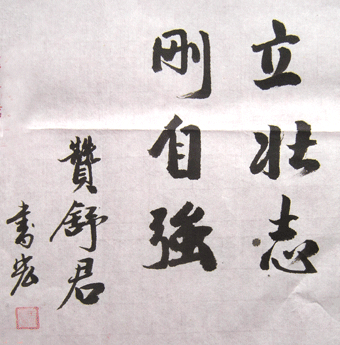 立壮志
刚自强
赞舒君
书宏